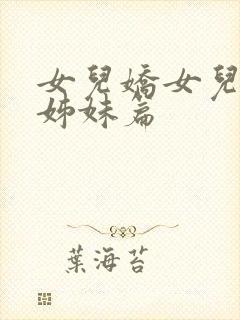 女兒嬌女兒
姊妹篇
葉海苔